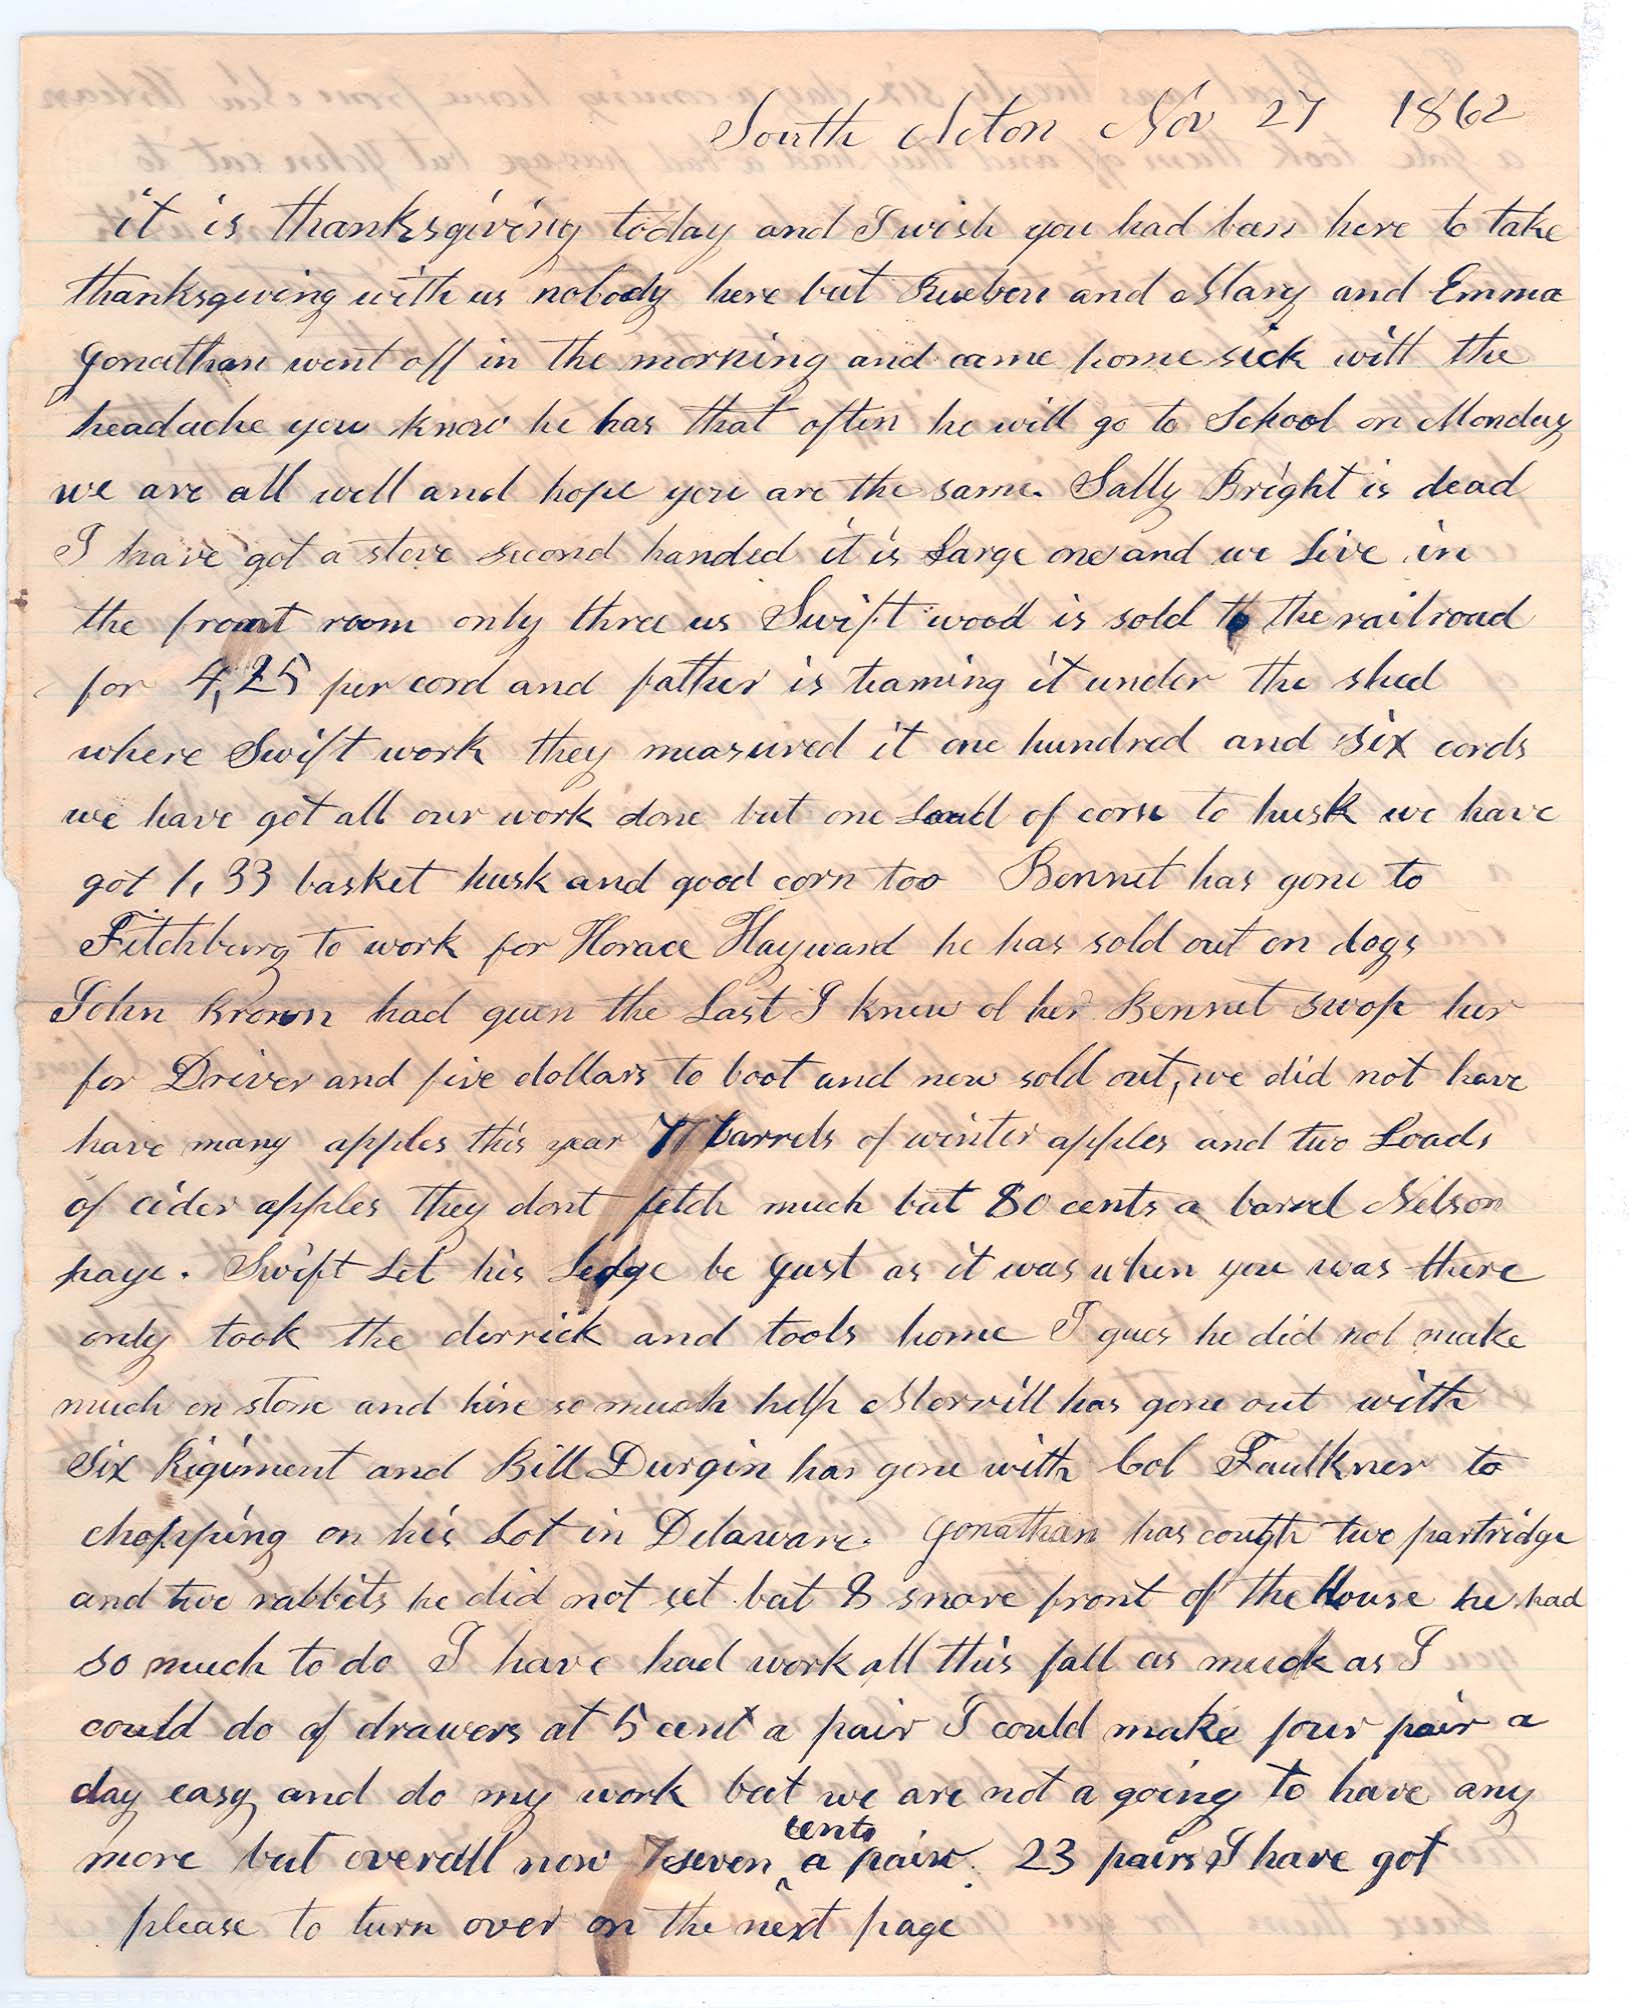 South Acton Nov 27 1862
it is thanksgiving today and I wish you had ban here to take
thanksgiving with us nobody here but Rueben and Mary and Emma
Jonathan went off in the morning and came home sick witt the
headache you know he has that often he will go to School on Monday
we are all well and hope you are the same. Sally Bright is dead
I have got a stove second handed it is Large one and we Live in
the front room only three us Swift wood is sold to the railroad
for 4,25 per cord and father is teaming it under the shed
where Swift work they measured it one hundred and six cords
we have got all our work done but one Load of corn to husk we have
got 1,33 basket husk and good corn too Bennet has gone to
Fitchburg to work for Horace Hayward he has sold out on dogs
John Brown had quen the Last I knew of her Bennet swop her
for Driver and five dollars to boot and now sold out, we did not have
have many apples this year 77 barrels of winter apples and two Loads
of cider apples they dont fetch much but 80 cents a barrel Nelson
paye. Swift Let his Ledge be Just as it was when you was there
only took the derrick and tools home I gues he did not make
much on stone and hire so much help Morrill has gone out with
Six Rigiment and Bill Durgin has gone with Col Faulkner to
chopping on his Lot in Delaware. Jonathan has cougth two partridge
and two rabbits he did not set but 8 snare front of the House he had
so much to do I have had work all this fall as much as I
could do of drawers at 5 cent a pair I could make four pair a
day easy and do my work but we are not a going to have any
more but overall now 7 seven cents a pair. 23 pairs I have got
please to turn over on the next page